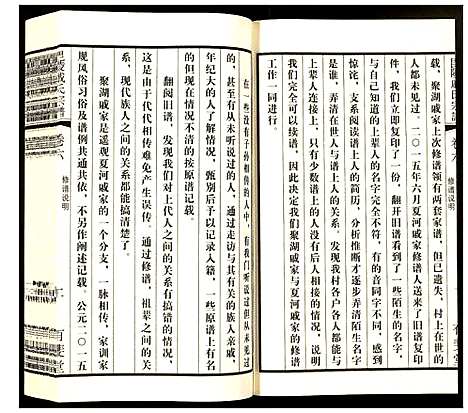 载，聚湖戚家上次修谱领有两套家谱，但已遗失，村上在世的
人都未见过。二〇一五年六月夏河戚家修谱人送来了旧谱复印
件，我们立即复印了一份，翻开旧谱看到了一些陌生的名字，
当看到谱上的上辈人的名字完全不符，有的音同字不同，感到
惊诧，支系谱表与谱上人的简历，分析推断才逐步弄清陌生名字
是谁，弄清在世人与谱上人的关系。发现我村各户各人都能与
上辈人连接上，只有少数谱上的人没有后人相接的情况，说明
我们完全可以续谱，因此决定我们聚湖戚家与夏河戚家的修谱
工作一同进行。
修谱说明
在一些没有子孙相传的人中，有我们听说过但从未见过
的，甚至有从未听说过的人，通过走访与其有关的族人亲戚，
年纪大的人了解情况，甄别后予以记录入籍，一些原谱上有名
的但现在情况不清的按原谱记载。
翻阅旧谱，发现我们对上代人之间的关系有搞错的情况，
这是由于代代相传难免产生误传。通过修谱，祖辈之间的关
系，现代族人之间的关系都能搞清楚了。
聚湖戚家是遥观夏河戚家的一个分支，一脉相传，家训家
规风俗习俗及谱例共通共依，不另作阐述记载。公元二〇一五
卷六
修谱说明
有斐堂